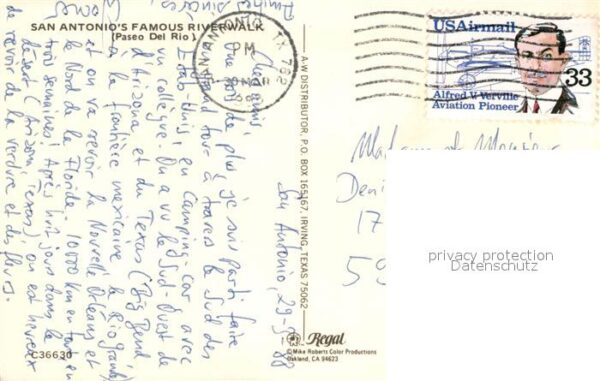 SAN ANTONIO'S FAMOUS RIVERWALK
(Paseo Del Rio)
San Antonio, 29-3-88
Chers amis,
Une fois de plus je suis parti faire
un grand tour à travers le Sud des
Etats Unis, en camping car avec
un collègue. On a vu le Sud-Ouest de
l'Arizona et du Texas (Big Bend
la frontière mexicaine, le Rio grande)
et on va revoir la Nouvelle Orléans et
le Nord de la Floride. 10000 km en tout en
trois semaines! Après huit jours dans le
désert (Arizona, Texas), on est heureux
de revoir de la verdure et des fleurs.
Amitiés
C36630
A-W DISTRIBUTOR, P.O. BOX 165167, IRVING, TEXAS 75062
Regal
© Mike Roberts Color Productions
Oakland, CA 94623
SAN ANTONIO, TX 782
PM
USAirmail
33
Alfred V. Verville
Aviation Pioneer
Madame et Monsieur
17
59
privacy protection
Datenschutz